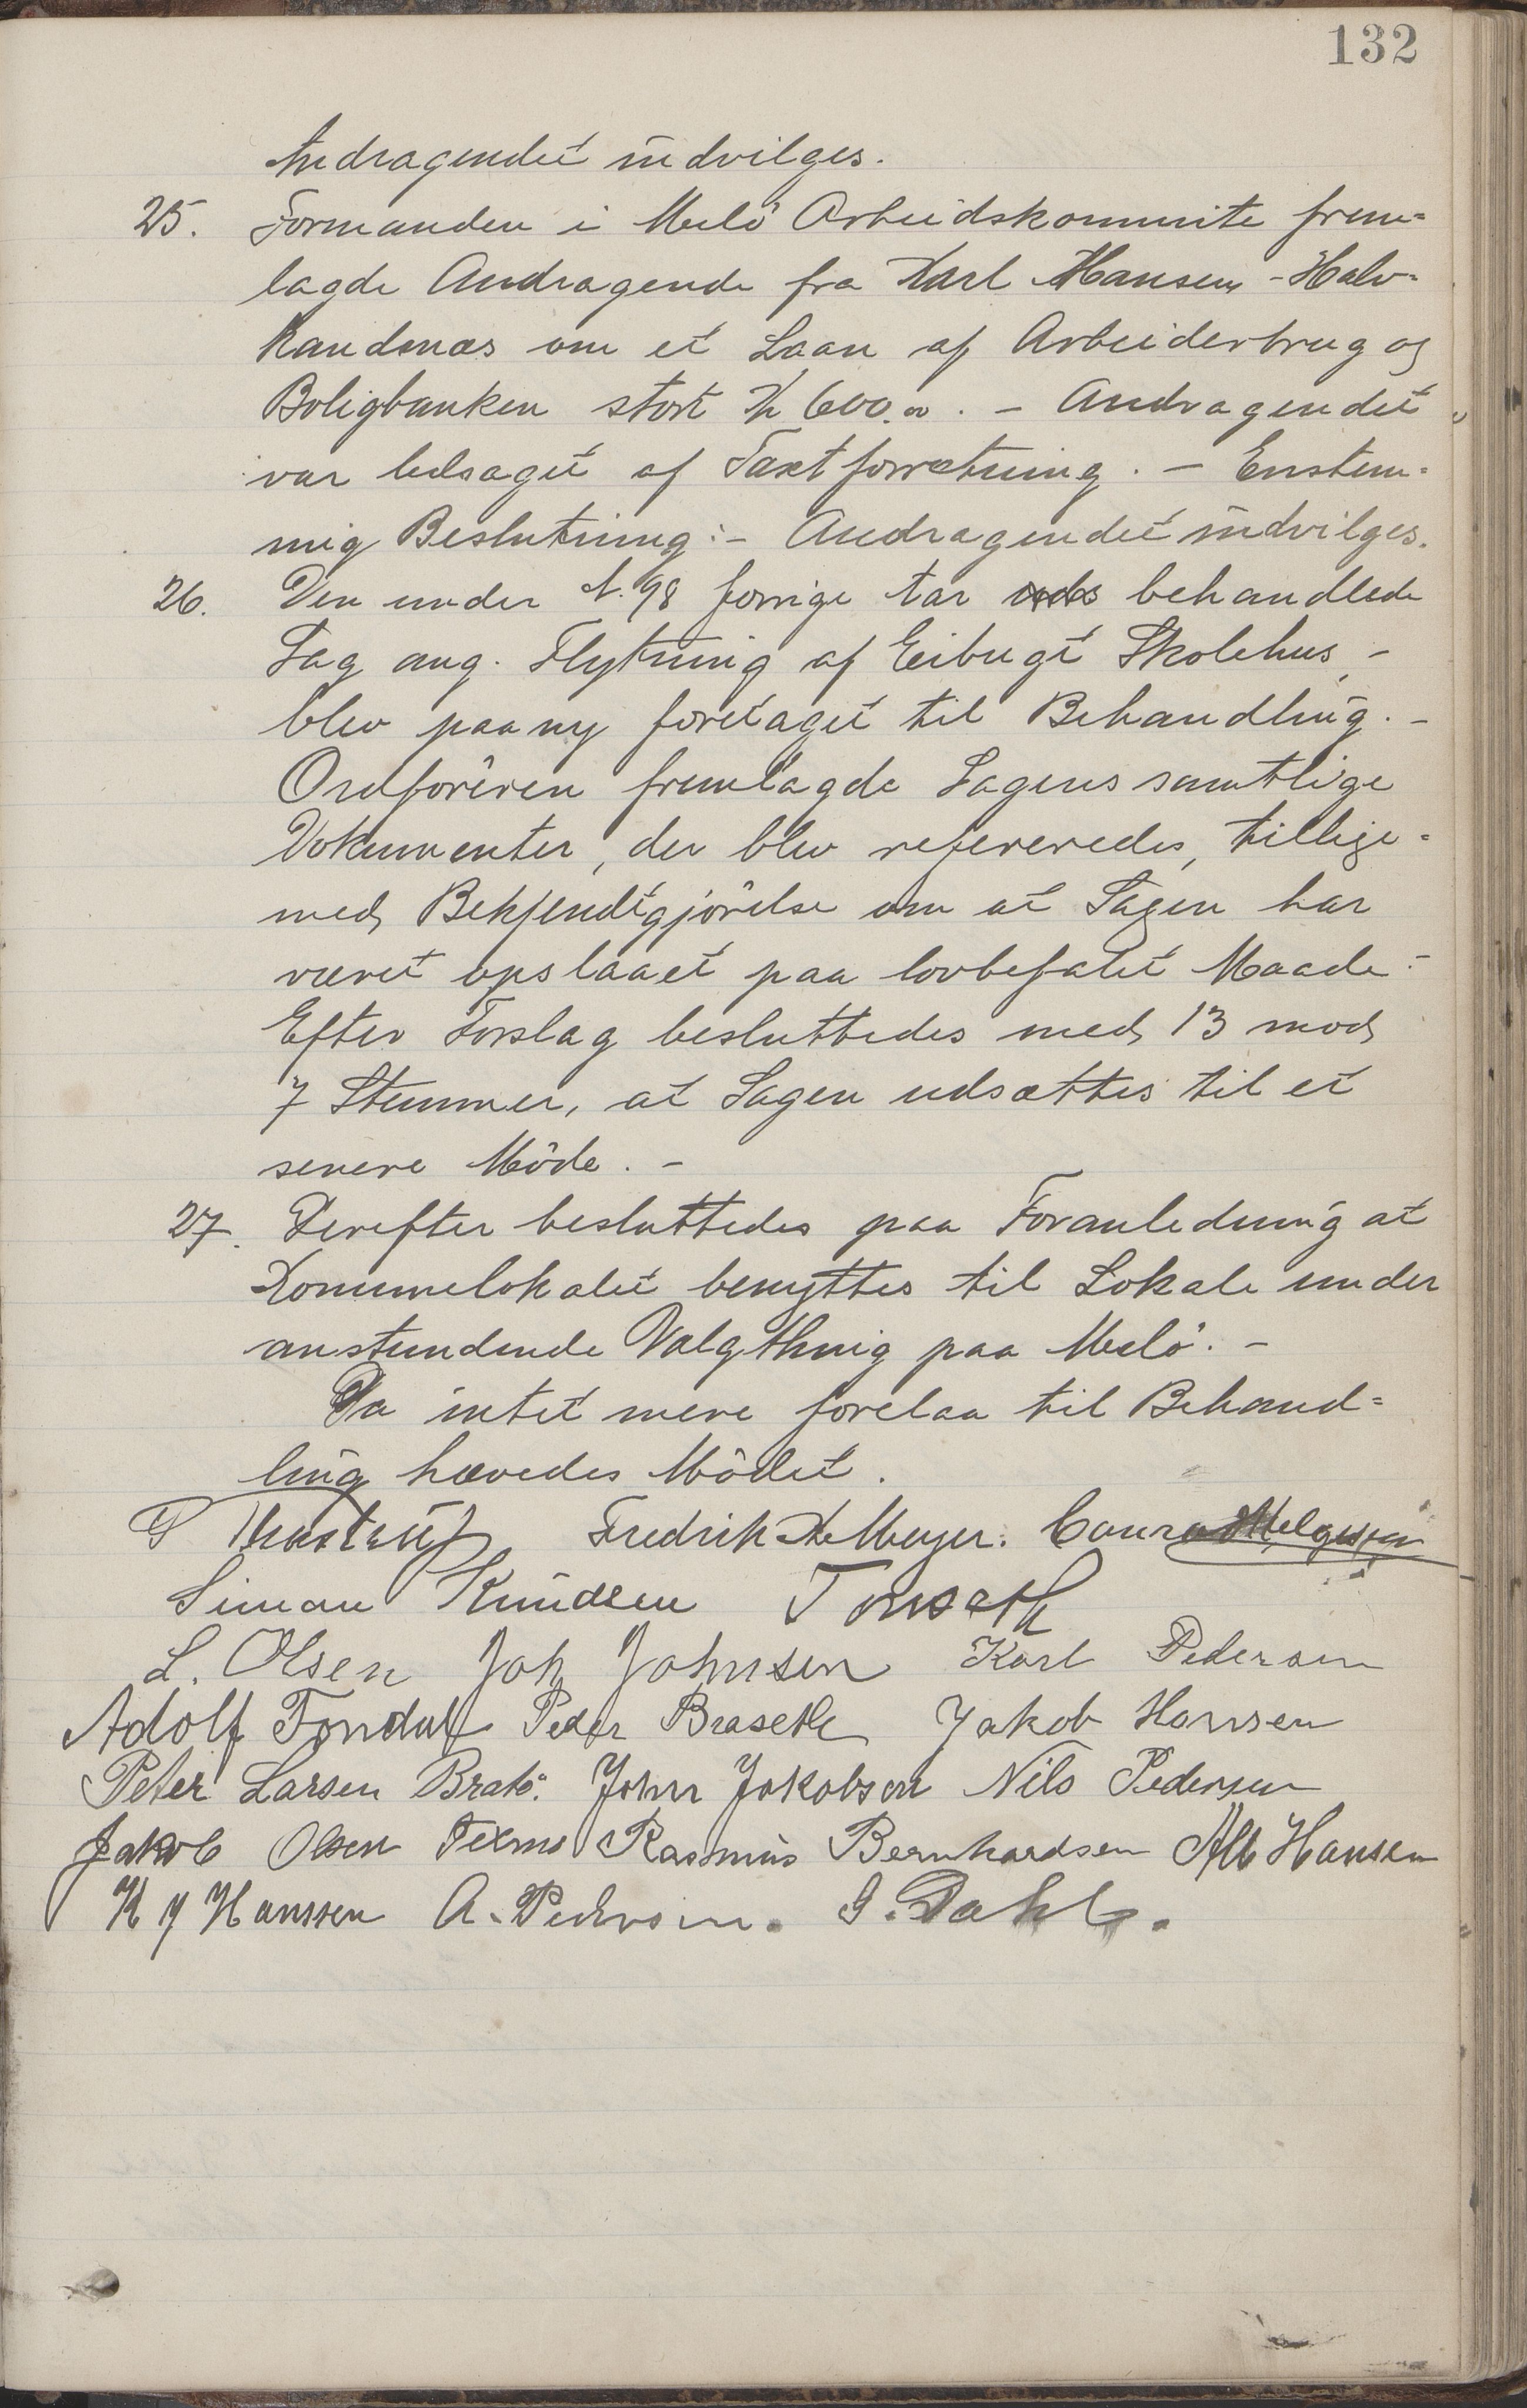 132
Andragendet indvilges.
25. Formanden i Melö Arbeidskommite frem-
lagde Andragende fra Karl Hansen - Halv-
kandnæs om et Laan af Arbeiderbrug og
Boligbanken stort Kr 600.00. - Andragendet
var ledsaget af Taxtforretning. - Enstem-
mig Beslutning:- Andragendet indvilges.
26. Den under N. 98 forrige Aar behandlede
Sag ang. Flytning af Eibugt Skolehus, -
blev paany foretaget til Behandling. -
Ordföreren fremlagde Sagens samtlige
Dokumenter, der blev refereredes, tillige-
med Bekjendtgjörelse om at Sagen har
været opslaaet paa lovbefalet Maade.-
Efter Forslag besluttedes med 13 mod
7 Stemmer, at Sagen udsættes til et
senere Möde. -
27. Derefter besluttedes paa Foranledning at
Kommunelokalet benyttes til Lokale under
anstundende Valgthing paa Melö. -
Da intet mere forelaa til Behand-
ling hævedes Mödet.
P Fredrik Meyer. Conrad Helgesen
Simon Knudsen Tonseth
L. Olsen Joh Johnsen Karl Pedersen
Adolf Fondal Peder Braseth Jakob Hansen
Peter Larsen Bratö. John Jakobsen Nils Pedersen
Jakob Olsen Rasmus Bernhardsen Alb Hansen
K J Hanssen A. Pedersen. G. Dahl.